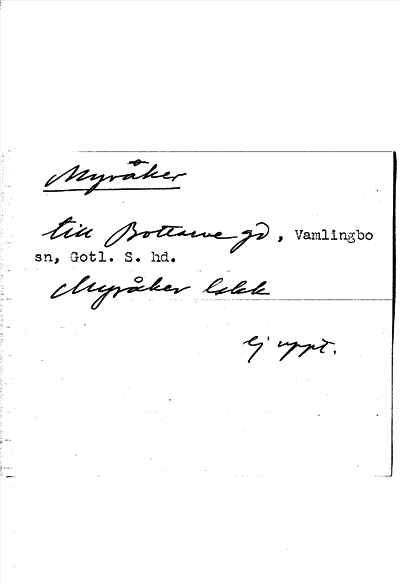 Myråker
till Bottarve gd, Vamlingbo
sn, Gotl. S. hd.
Myråker
ej uppt.